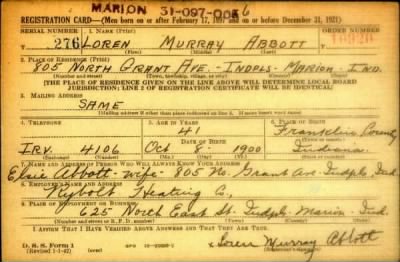 MARION 31-097-0056
REGISTRATION CARD—(Men born on or after February 17, 1897 and on or before December 31, 1921)
SERIAL NUMBER 1. NAME (Print) ORDER NUMBER
276 LOREN MURRAY ABBOTT
(First) (Middle) (Last)
2. PLACE OF RESIDENCE (Print)
805 NORTH GRANT AVE - INDPLS - MARION - IND.
(Number and street) (Town, township, village, or city) (County) (State)
[THE PLACE OF RESIDENCE GIVEN ON THE LINE ABOVE WILL DETERMINE LOCAL BOARD
JURISDICTION; LINE 2 OF REGISTRATION CERTIFICATE WILL BE IDENTICAL]
3. MAILING ADDRESS
SAME
[Mailing address if other than place indicated on line 2. If same insert word same]
4. TELEPHONE 5. AGE IN YEARS 6. PLACE OF BIRTH
41 Franklin County
DATE OF BIRTH
IRV. 4106 Oct 8 1900 Indiana
7. NAME AND ADDRESS OF PERSON WHO WILL ALWAYS KNOW YOUR ADDRESS
Elsie Abbott - wife - 805 No. Grant Ave Indpls, Ind.
8. EMPLOYER'S NAME AND ADDRESS
Rybolt Heating Co,
9. PLACE OF EMPLOYMENT OR BUSINESS
625 North East St. Indpls - Marion - Ind.
(Number and street or R. F. D. number) (Town) (County) (State)
I AFFIRM THAT I HAVE VERIFIED ABOVE ANSWERS AND THAT THEY ARE TRUE.
D. S. S. Form 1
(Revised 1-1-42) Loren Murray Abbott